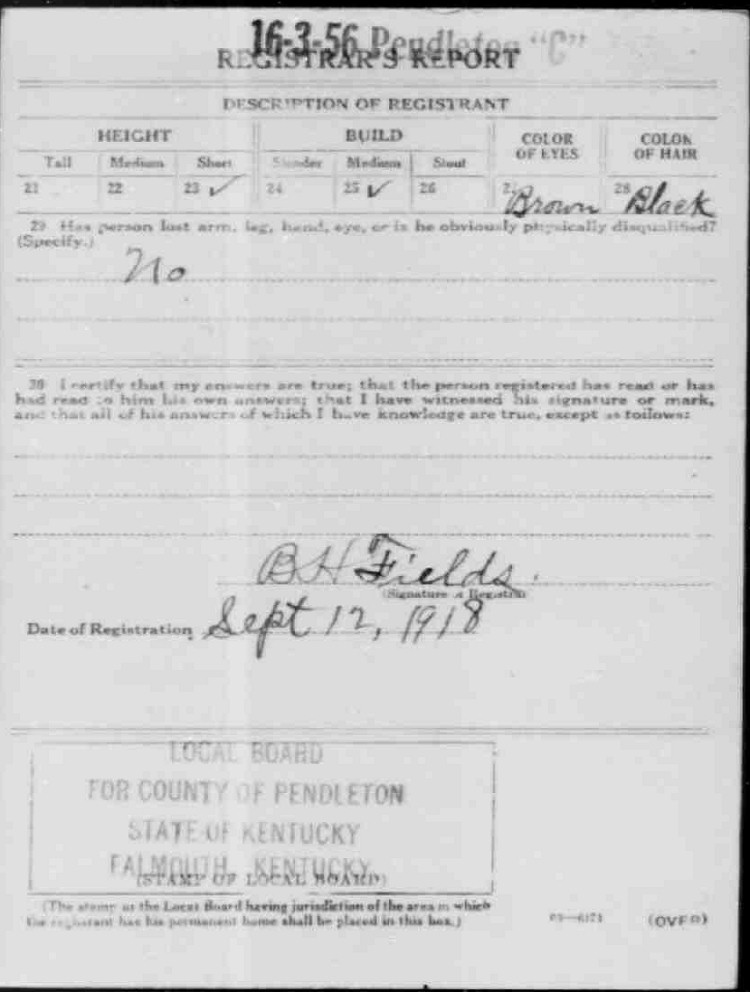 16-3-56 Pendleton "C"
REGISTRAR'S REPORT
DESCRIPTION OF REGISTRANT
HEIGHT BUILD COLOR OF EYES COLOR OF HAIR
Tall Medium Short Slender Medium Stout
21 22 23 ✓ 24 25 ✓ 26 27 Brown 28 Black
29 Has person lost arm, leg, hand, eye, or is he obviously physically disqualified?
(Specify.)
No
30 I certify that my answers are true; that the person registered has read or has
had read to him his own answers; that I have witnessed his signature or mark,
and that all of his answers of which I have knowledge are true, except as follows:
B H Fields.
(Signature of Registrar)
Date of Registration Sept 12, 1918
LOCAL BOARD
FOR COUNTY OF PENDLETON
STATE OF KENTUCKY
FALMOUTH, KENTUCKY
(STAMP OF LOCAL BOARD)
(The stamp of the Local Board having jurisdiction of the area in which
the registrant has his permanent home shall be placed in this box.)
03—6171 (OVER)